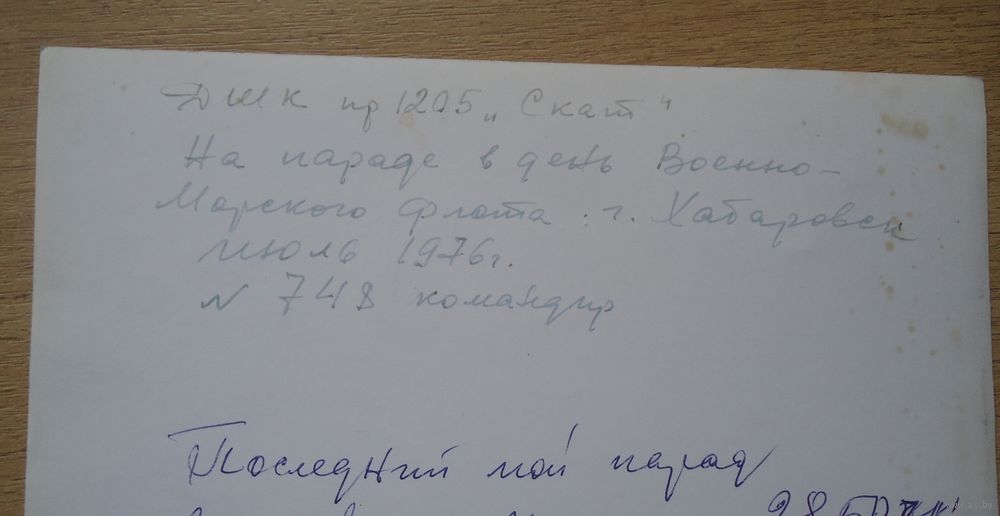 ДШК пр 1205 „Скат“
На параде в день Военно-
Морского флота г. Хабаровск
июль 1976г.
N 748 командир
Последний мой парад